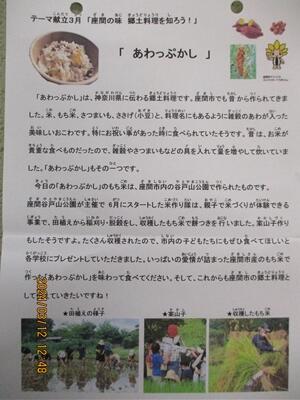 テーマ献立3月「座間の味 郷土料理を知ろう！」
「 あわっぷかし 」
「あわっぷかし」は、神奈川県に伝わる郷土料理です。座間市でも昔から作られてきま
した。米、もち米、さつまいも、ささげ（小豆）と、料理名にもあるように雑穀のあわが入った
美味しいおこわです。特にお祝い事があった時に食べられていたそうです。昔は、お米が
貴重な食べものだったので、雑穀やさつまいもなどの具を入れて量を増やして炊いていま
した。「あわっぷかし」もその一つです。
今日の「あわっぷかし」のもち米は、座間市内の谷戸山公園で作られたものです。
座間谷戸山公園が主催で6月にスタートした米作り隊は、親子で米づくりが体験できる
事業で、田植えから稲刈り・脱穀をし、収穫したもち米で餅つきを行いました。案山子作り
もしたそうですよ。たくさん収穫されたので、市内の子どもたちにもぜひ食べてほしいと
各学校にプレゼントしていただきました。いっぱいの愛情が詰まった座間市産のもち米で
作った「あわっぷかし」を味わって食べてください。そして、これからも座間市の郷土料理と
して伝えていきたいですね！
★田植えの様子
★案山子
★収穫したもち米
12:48